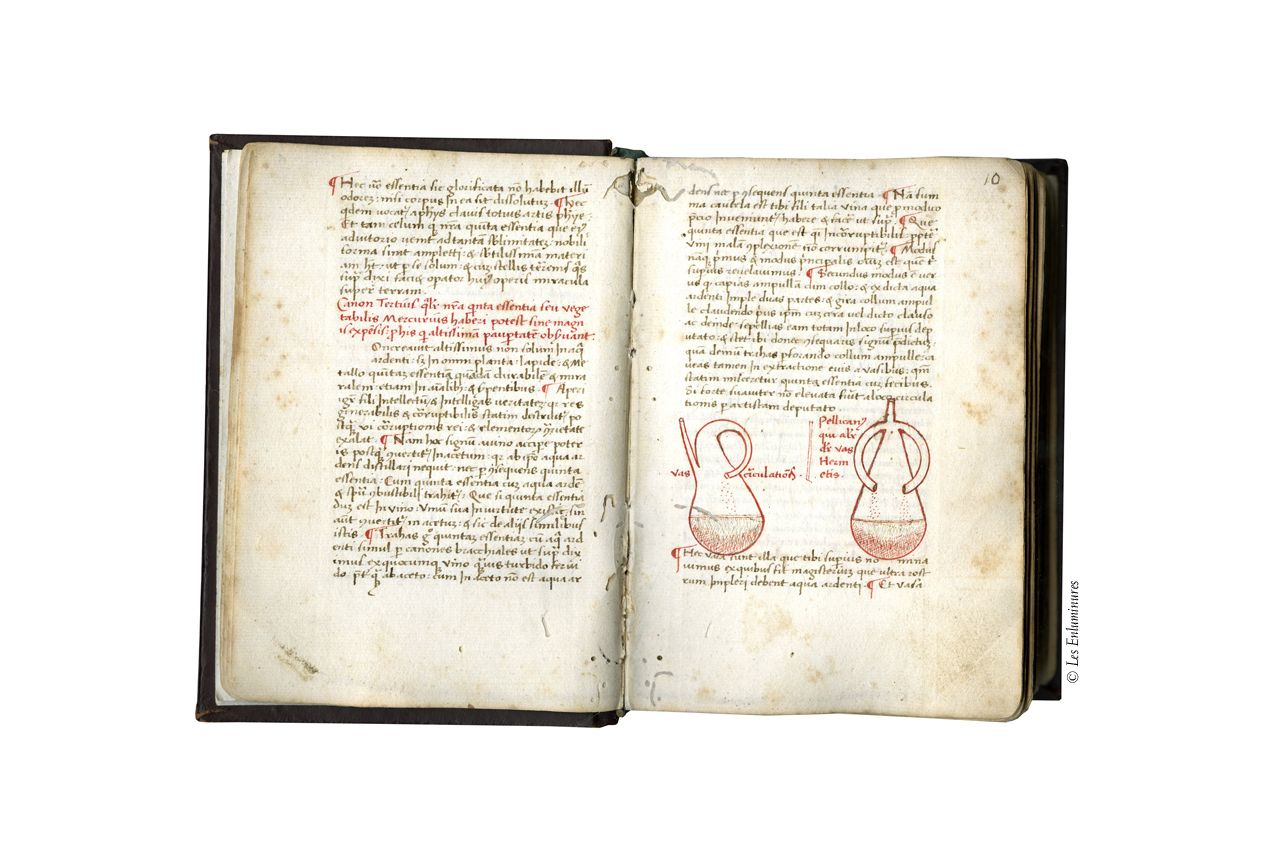 ¶ Hec uo essentia sic glorificata no habebit illu
odorez: nisi corpus in ea sit dissolutuz. ¶ Hec
qdem vocat a phys clauis totius artis phye:
Et tam celum q nra quita essentia que ei
adiutorio venit ad tantam sblimitatez: nobili
forma sunt ampletti: & sbtilissima materi
am: ut p se solum: & cuz stellis terenis qs
supi dixi facis opator huj operis miracula
super terram.
Canon Tertius qlr nra qnta essentia seu vege
tabilis Mercurius haberi potest sine magn
is expesis: phis q altissima paupertate obseruant.
Oncreauit altissimus non solum in aq
ardenti: sz in omni planta: lapide: & Me
tallo quitaz essentia quada durabile & mira
ralem: etiam in aialib: & serpentibus. ¶ Aperi
igr fili Intellectu & Intelligas veritatez: qr res
generabilis & corruptibilis statim destruit po
stq vi corruptionis rei: & elementor
exalat. ¶ Nam hoc signum a uino accipe poter
is postq quertit in acetum: qr ab ipo aqua ar
dens distillari nequit: nec p nsequens quinta
essentia: Cum quinta essentia cuz aqua arde
& spu nbustibili trahit: Que si quinta essentia
duz est in vino: Vnam sua in uirtute existat, sin
aut quertit in acetuz: & sic de aliis similibus
istis. ¶ Trahas go quintaz essentiaz cu aq ard
enti simul p canones bracchiales ut sup dix
imus ex quocumq vino quis turbido
do. pt q ab aceto: cum in aceto no est aqua ar
10
dens nec p nsequens quinta essentia ¶ Na sum
ma cautela est tibi fili talia vina que p modico
pcio inueniunt habere & face ut sup. ¶ Que
quinta essentia que est qi incorruptibilis pote
vini mala nplexione no corrumpit. ¶ Modus
naq pmus & modus pncipalis est que t
supius reuelauimus. ¶ Secundus modus e ver
us q capias ampulla cum collo: & ex dicta aqua
ardenti imple duas partes: & gira collum ampul
le claudendo pus ipm cuz cera vel dicto clauso
ac deinde sepellias eam totam in loco supius dep
utato & stet ibi donec nsequaris signu pdictuz
qua demu trahas pforando collum ampulle: ca
ueas tamen in extractione euis a vasibus: qm
statim misceretur quinta essentia cuz fecibus.
Si forte suauiter no eleuata fiut a loco circula
tionis p artistam deputato.
vas circulationis.
Pellican
qui alr
dr vas
Herm
etis.
¶ Hec vasa sunt illa que tibi supius no mina
uimus ex quibus fit magisterium que ultra rost
rum impleri debent aqua ardenti. ¶ Et vasa
© Les Enluminures